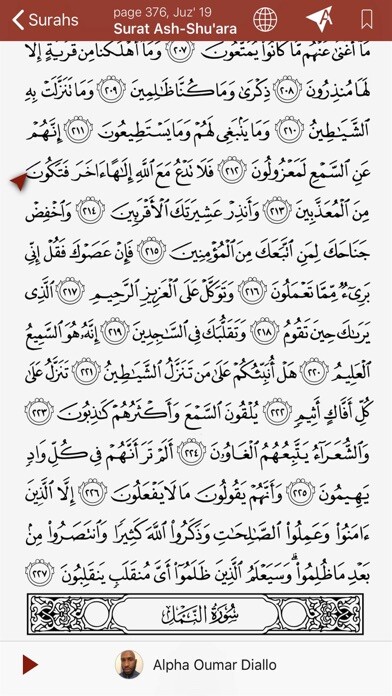 Surahs
page 376, Juz' 19
Surat Ash-Shu'ara
مَا أَغْنَىٰ عَنْهُم مَّا كَانُوا۟ يُمَتَّعُونَ ٢٠٧ وَمَا أَهْلَكْنَا مِن قَرْيَةٍ إِلَّا
لَهَا مُنذِرُونَ ٢٠٨ ذِكْرَىٰ وَمَا كُنَّا ظَـٰلِمِينَ ٢٠٩ وَمَا تَنَزَّلَتْ بِهِ
ٱلشَّيَـٰطِينُ ٢١٠ وَمَا يَنۢبَغِى لَهُمْ وَمَا يَسْتَطِيعُونَ ٢١١ إِنَّهُمْ
عَنِ ٱلسَّمْعِ لَمَعْزُولُونَ ٢١٢ فَلَا تَدْعُ مَعَ ٱللَّهِ إِلَـٰهًا ءَاخَرَ فَتَكُونَ
مِنَ ٱلْمُعَذَّبِينَ ٢١٣ وَأَنذِرْ عَشِيرَتَكَ ٱلْأَقْرَبِينَ ٢١٤ وَٱخْفِضْ
جَنَاحَكَ لِمَنِ ٱتَّبَعَكَ مِنَ ٱلْمُؤْمِنِينَ ٢١٥ فَإِنْ عَصَوْكَ فَقُلْ إِنِّى
بَرِىٓءٌ مِّمَّا تَعْمَلُونَ ٢١٦ وَتَوَكَّلْ عَلَى ٱلْعَزِيزِ ٱلرَّحِيمِ ٢١٧ ٱلَّذِى
يَرَىٰكَ حِينَ تَقُومُ ٢١٨ وَتَقَلُّبَكَ فِى ٱلسَّـٰجِدِينَ ٢١٩ إِنَّهُۥ هُوَ ٱلسَّمِيعُ
ٱلْعَلِيمُ ٢٢٠ هَلْ أُنَبِّئُكُمْ عَلَىٰ مَن تَنَزَّلُ ٱلشَّيَـٰطِينُ ٢٢١ تَنَزَّلُ عَلَىٰ
كُلِّ أَفَّاكٍ أَثِيمٍ ٢٢٢ يُلْقُونَ ٱلسَّمْعَ وَأَكْثَرُهُمْ كَـٰذِبُونَ ٢٢٣
وَٱلشُّعَرَآءُ يَتَّبِعُهُمُ ٱلْغَاوُۥنَ ٢٢٤ أَلَمْ تَرَ أَنَّهُمْ فِى كُلِّ وَادٍ
يَهِيمُونَ ٢٢٥ وَأَنَّهُمْ يَقُولُونَ مَا لَا يَفْعَلُونَ ٢٢٦ إِلَّا ٱلَّذِينَ
ءَامَنُوا۟ وَعَمِلُوا۟ ٱلصَّـٰلِحَـٰتِ وَذَكَرُوا۟ ٱللَّهَ كَثِيرًا وَٱنتَصَرُوا۟ مِنۢ
بَعْدِ مَا ظُلِمُوا۟ ۗ وَسَيَعْلَمُ ٱلَّذِينَ ظَلَمُوٓا۟ أَىَّ مُنقَلَبٍ يَنقَلِبُونَ ٢٢٧
سُورَةُ ٱلنَّمْلِ
Alpha Oumar Diallo